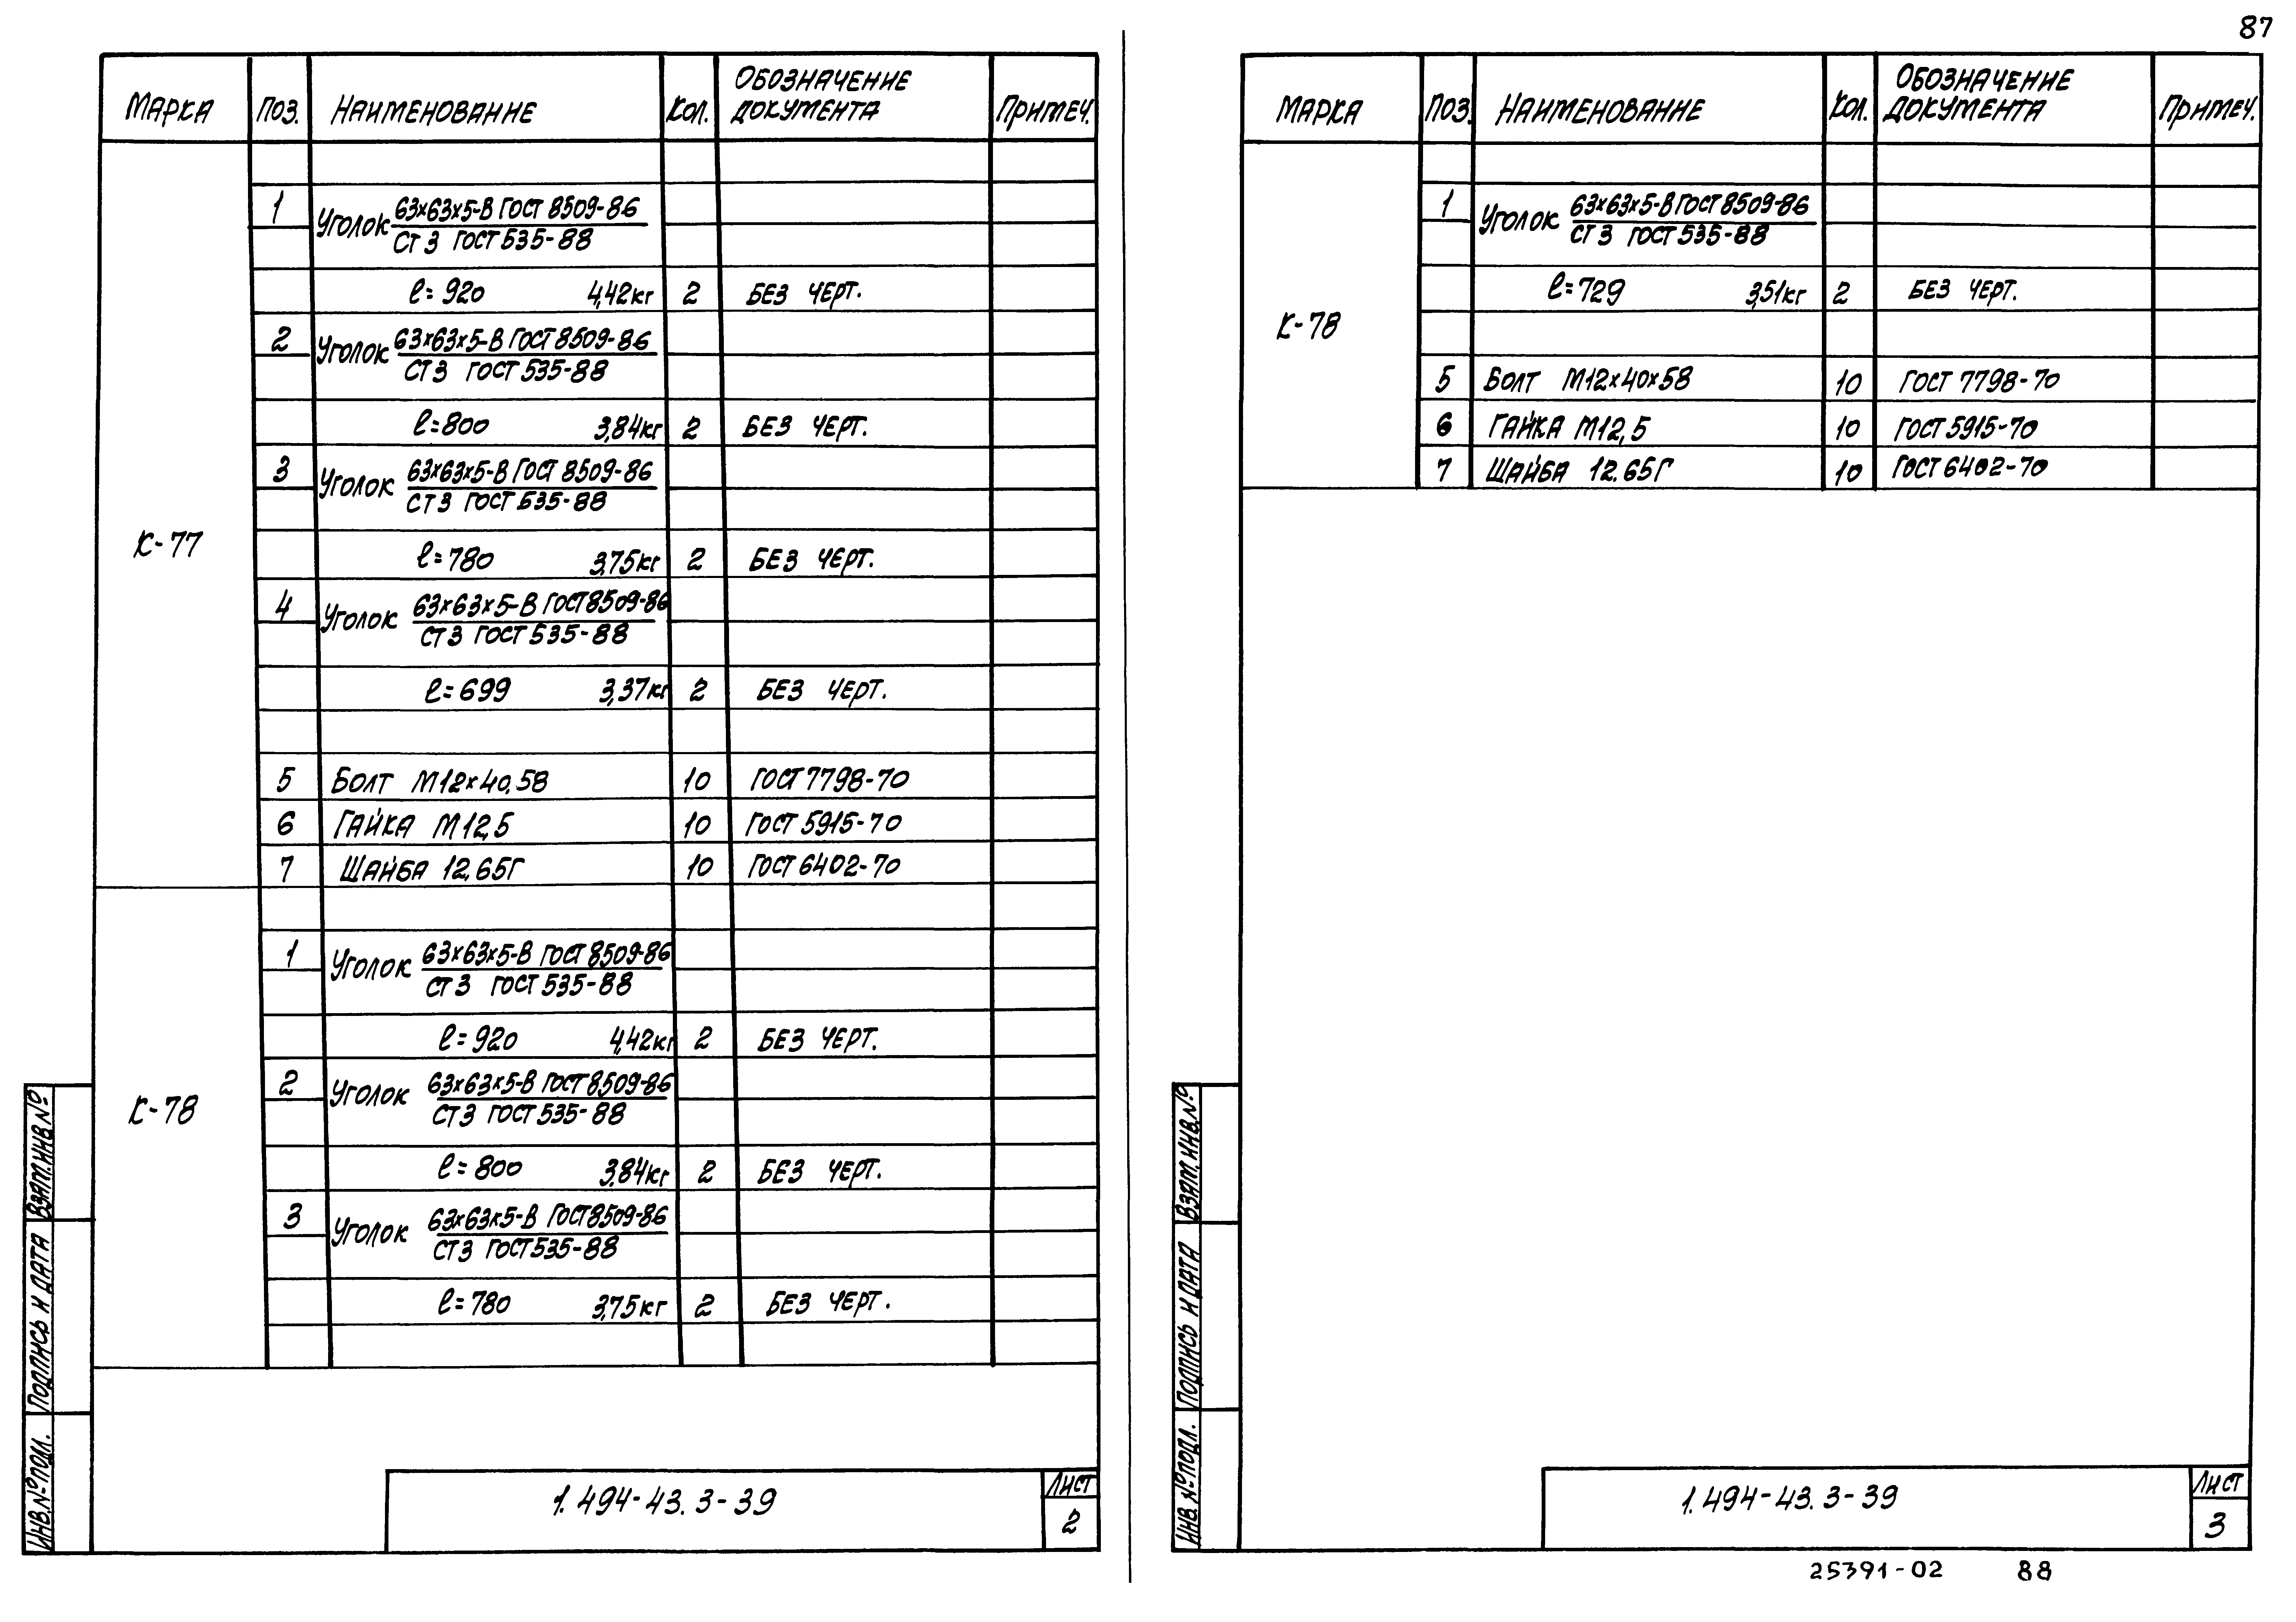 87
МАРКА ПОЗ. НАИМЕНОВАНИЕ КОЛ. ОБОЗНАЧЕНИЕ ДОКУМЕНТА ПРИМЕЧ.
К-77
1 Уголок 63х63х5-В ГОСТ 8509-86
СТ 3 ГОСТ 535-88
ℓ=920 4,42кг 2 БЕЗ ЧЕРТ.
2 Уголок 63х63х5-В ГОСТ 8509-86
СТ 3 ГОСТ 535-88
ℓ=800 3,84кг 2 БЕЗ ЧЕРТ.
3 Уголок 63х63х5-В ГОСТ 8509-86
СТ 3 ГОСТ 535-88
ℓ=780 3,75кг 2 БЕЗ ЧЕРТ.
4 Уголок 63х63х5-В ГОСТ 8509-86
СТ 3 ГОСТ 535-88
ℓ=699 3,37кг 2 БЕЗ ЧЕРТ.
5 БОЛТ М12х40.58 10 ГОСТ 7798-70
6 ГАЙКА М12,5 10 ГОСТ 5915-70
7 ШАЙБА 12.65Г 10 ГОСТ 6402-70
К-78
1 Уголок 63х63х5-В ГОСТ 8509-86
СТ 3 ГОСТ 535-88
ℓ=920 4,42кг 2 БЕЗ ЧЕРТ.
2 Уголок 63х63х5-В ГОСТ 8509-86
СТ 3 ГОСТ 535-88
ℓ=800 3,84кг 2 БЕЗ ЧЕРТ.
3 Уголок 63х63х5-В ГОСТ 8509-86
СТ 3 ГОСТ 535-88
ℓ=780 3,75кг 2 БЕЗ ЧЕРТ.
ВЗАМ.ИНВ.№
ПОДПИСЬ И ДАТА
ИНВ.№ПОДЛ.
1.494-43.3-39
ЛИСТ
2
МАРКА ПОЗ. НАИМЕНОВАНИЕ КОЛ. ОБОЗНАЧЕНИЕ ДОКУМЕНТА ПРИМЕЧ.
К-78
1 Уголок 63х63х5-В ГОСТ 8509-86
СТ 3 ГОСТ 535-88
ℓ=729 3,51кг 2 БЕЗ ЧЕРТ.
5 БОЛТ М12х40х58 10 ГОСТ 7798-70
6 ГАЙКА М12,5 10 ГОСТ 5915-70
7 ШАЙБА 12.65Г 10 ГОСТ 6402-70
ВЗАМ.ИНВ.№
ПОДПИСЬ И ДАТА
ИНВ.№ПОДЛ.
1.494-43.3-39
ЛИСТ
3
25391-02 88